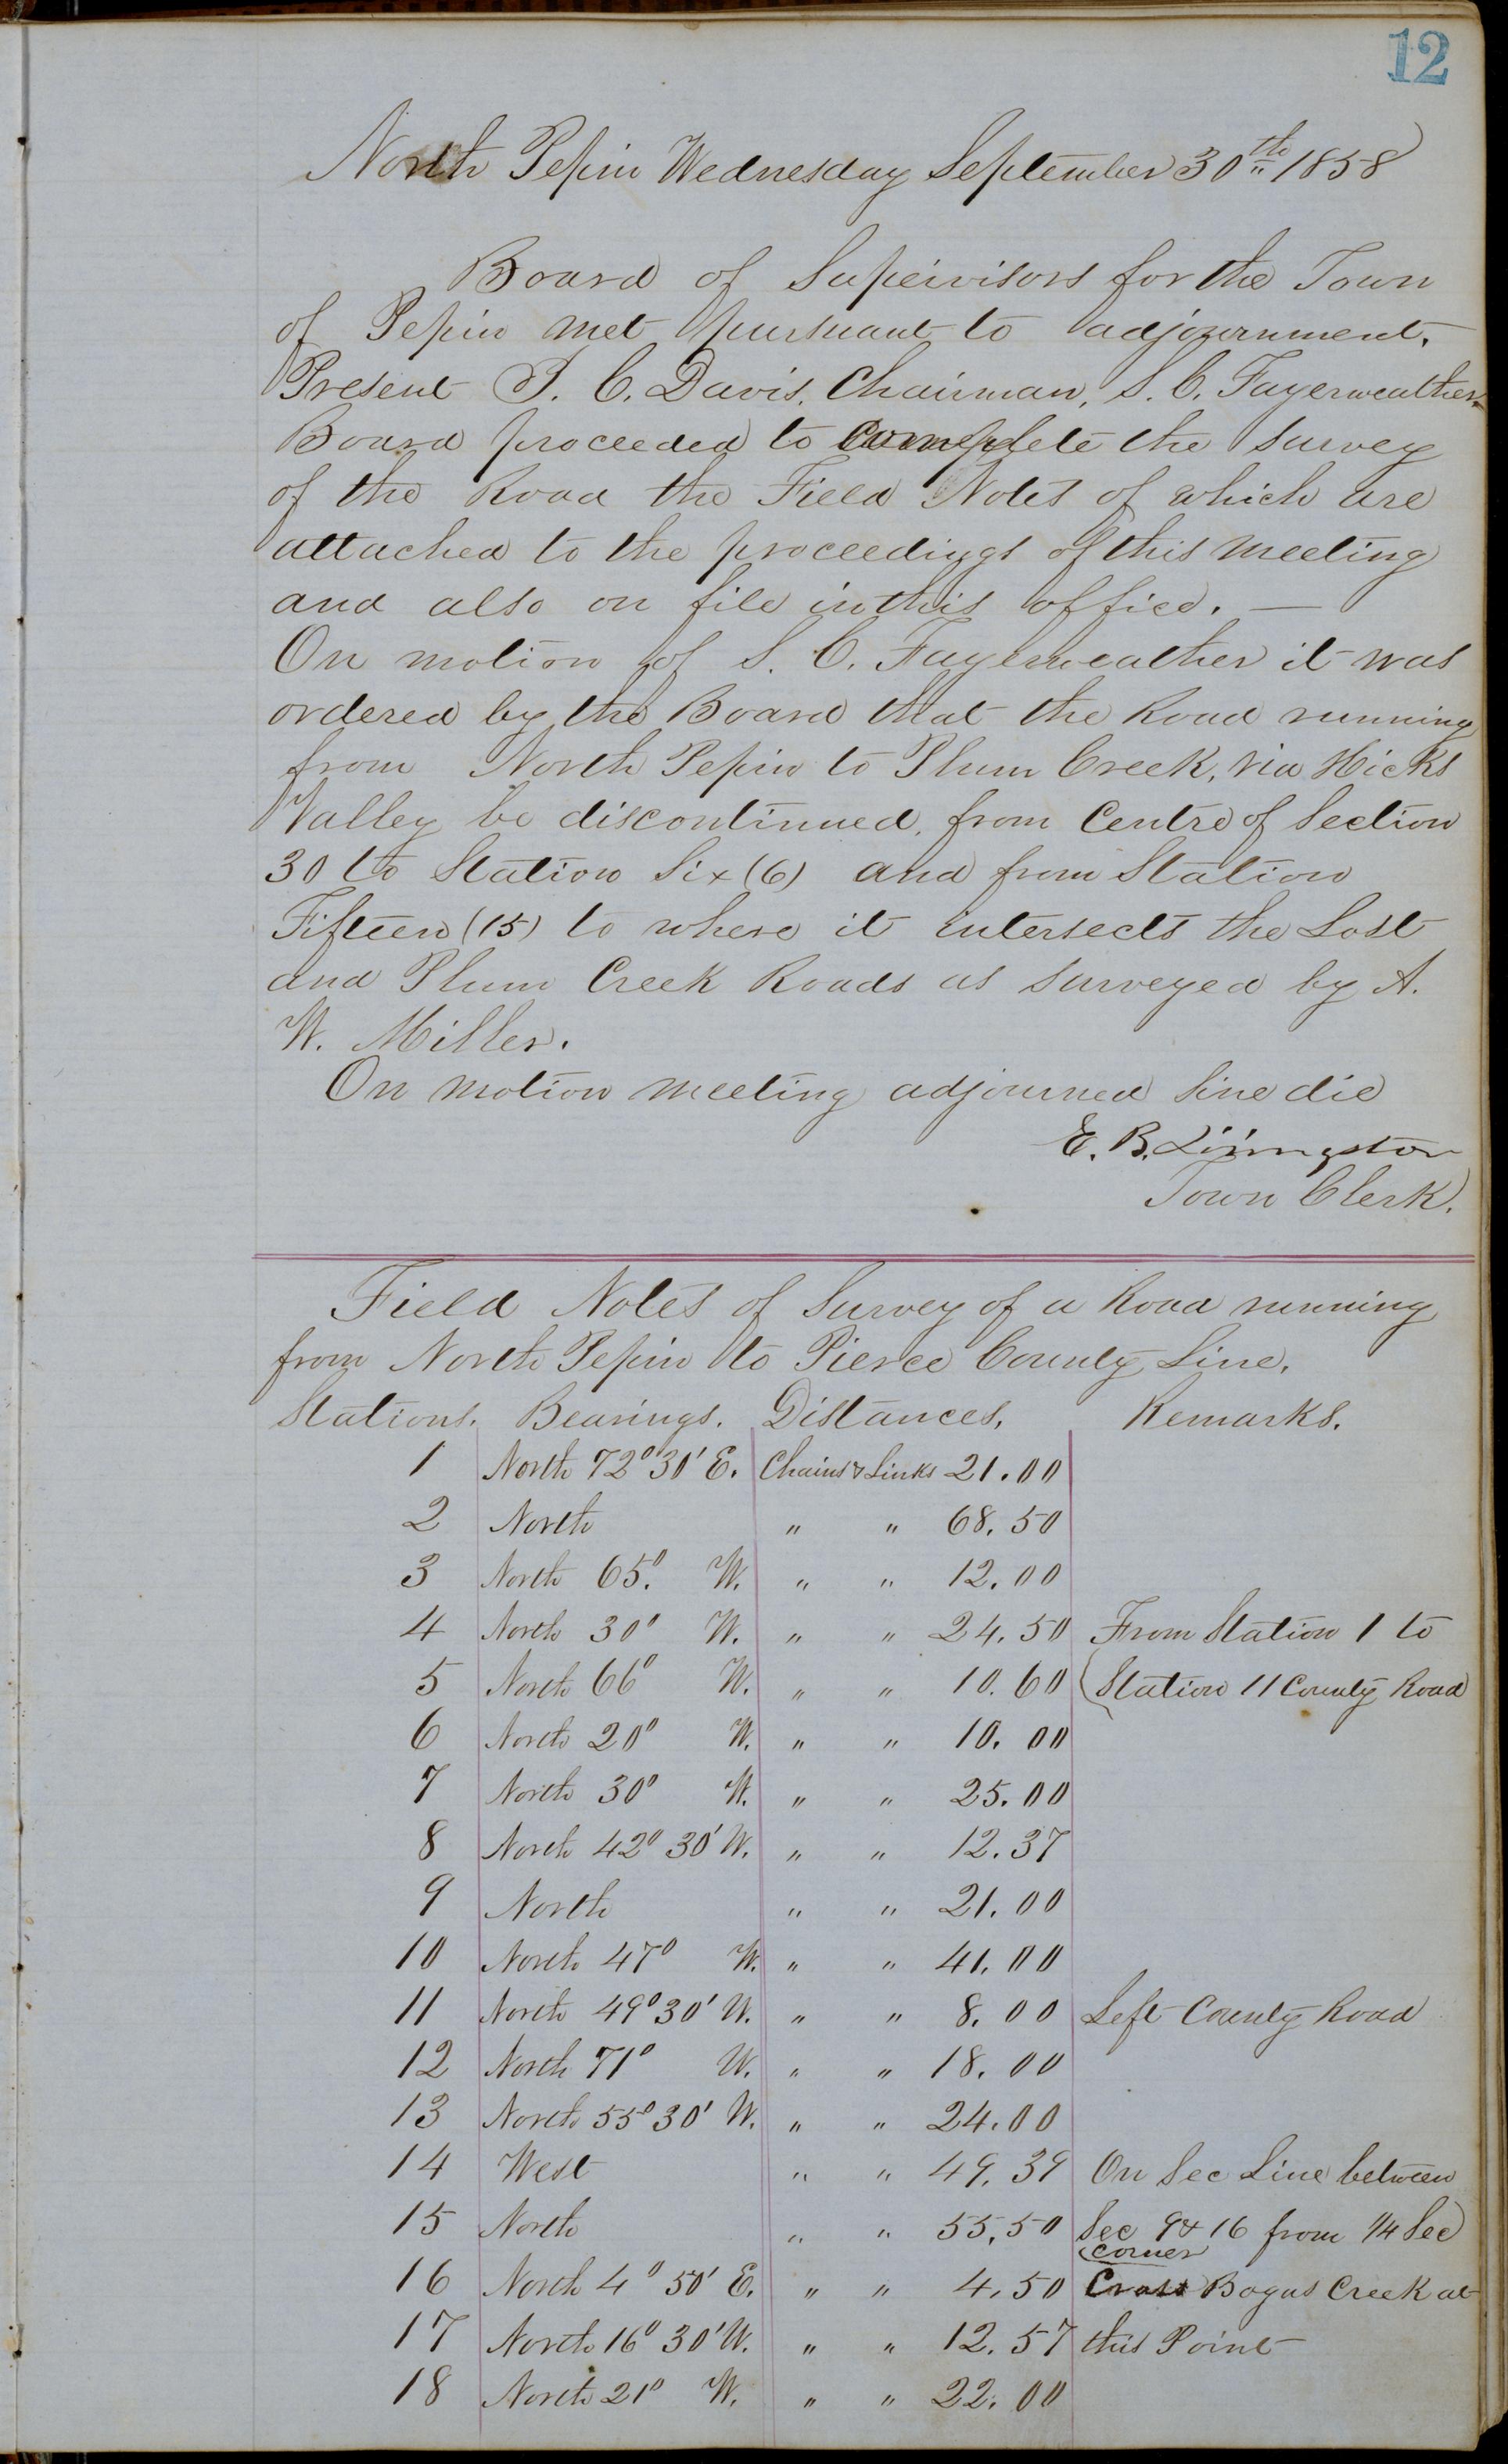 12
North Pepin Wednesday September 30th 1858
Board of Supervisors for the Town
of Pepin met pursuant to adjournment.
Present I. C. Davis, Chairman, S. C. Fayerweather.
Board proceeded to complete the survey
of the Road the Field Notes of which are
attached to the proceedings of this meeting
and also on file in this office. —
On motion of S. C. Fayerweather it was
ordered by the Board that the Road running
from North Pepin to Plum Creek, via Hicks
Valley be discontinued, from Centre of Section
30 to Station Six (6) and from Station
Fifteen (15) to where it intersects the Lost
and Plum Creek Roads as surveyed by A.
W. Miller.
On motion meeting adjourned sine die
E. B. Livingston
Town Clerk.
Field Notes of Survey of a Road running
from North Pepin to Pierce County Line.
Stations. Bearings. Distances. Remarks.
1 North 72° 30' E. Chains & Links 21.00
2 North " " 68.50
3 North 65°. W. " " 12.00
4 North 30° W. " " 24.50 From Station 1 to
5 North 66° W. " " 10.60 Station 11 County Road
6 North 20° W. " " 10.00
7 North 30° W. " " 25.00
8 North 42° 30' W. " " 12.37
9 North " " 21.00
10 North 47° W. " " 41.00
11 North 49° 30' W. " " 8.00 Left County Road
12 North 71° W. " " 18.00
13 North 55° 30' W. " " 24.00
14 West " " 49.39 On Sec Line between
15 North " " 55.50 Sec 9 & 16 from 1/4 Sec
corner
16 North 4° 50' E. " " 4.50 Cross Bogus Creek at
17 North 16° 30' W. " " 12.57 this Point
18 North 21° W. " " 22.00